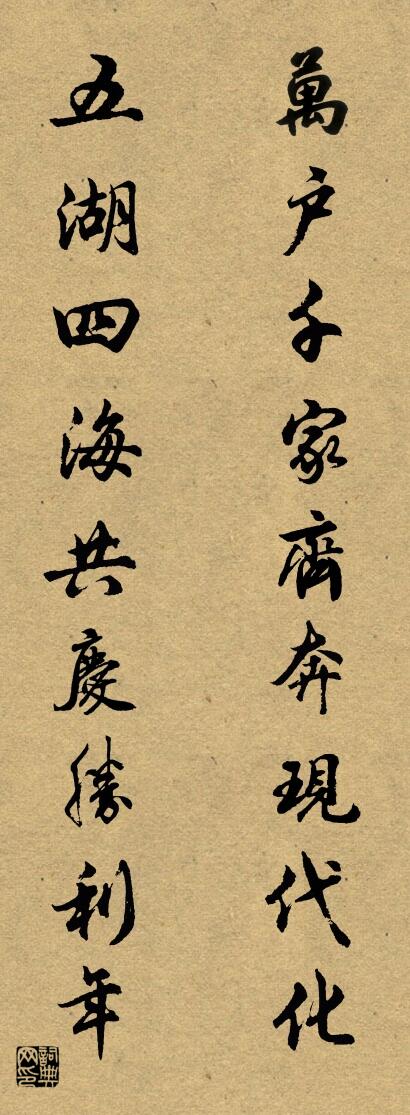 萬户千家齊奔現代化
五湖四海共慶勝利年
詞典网印